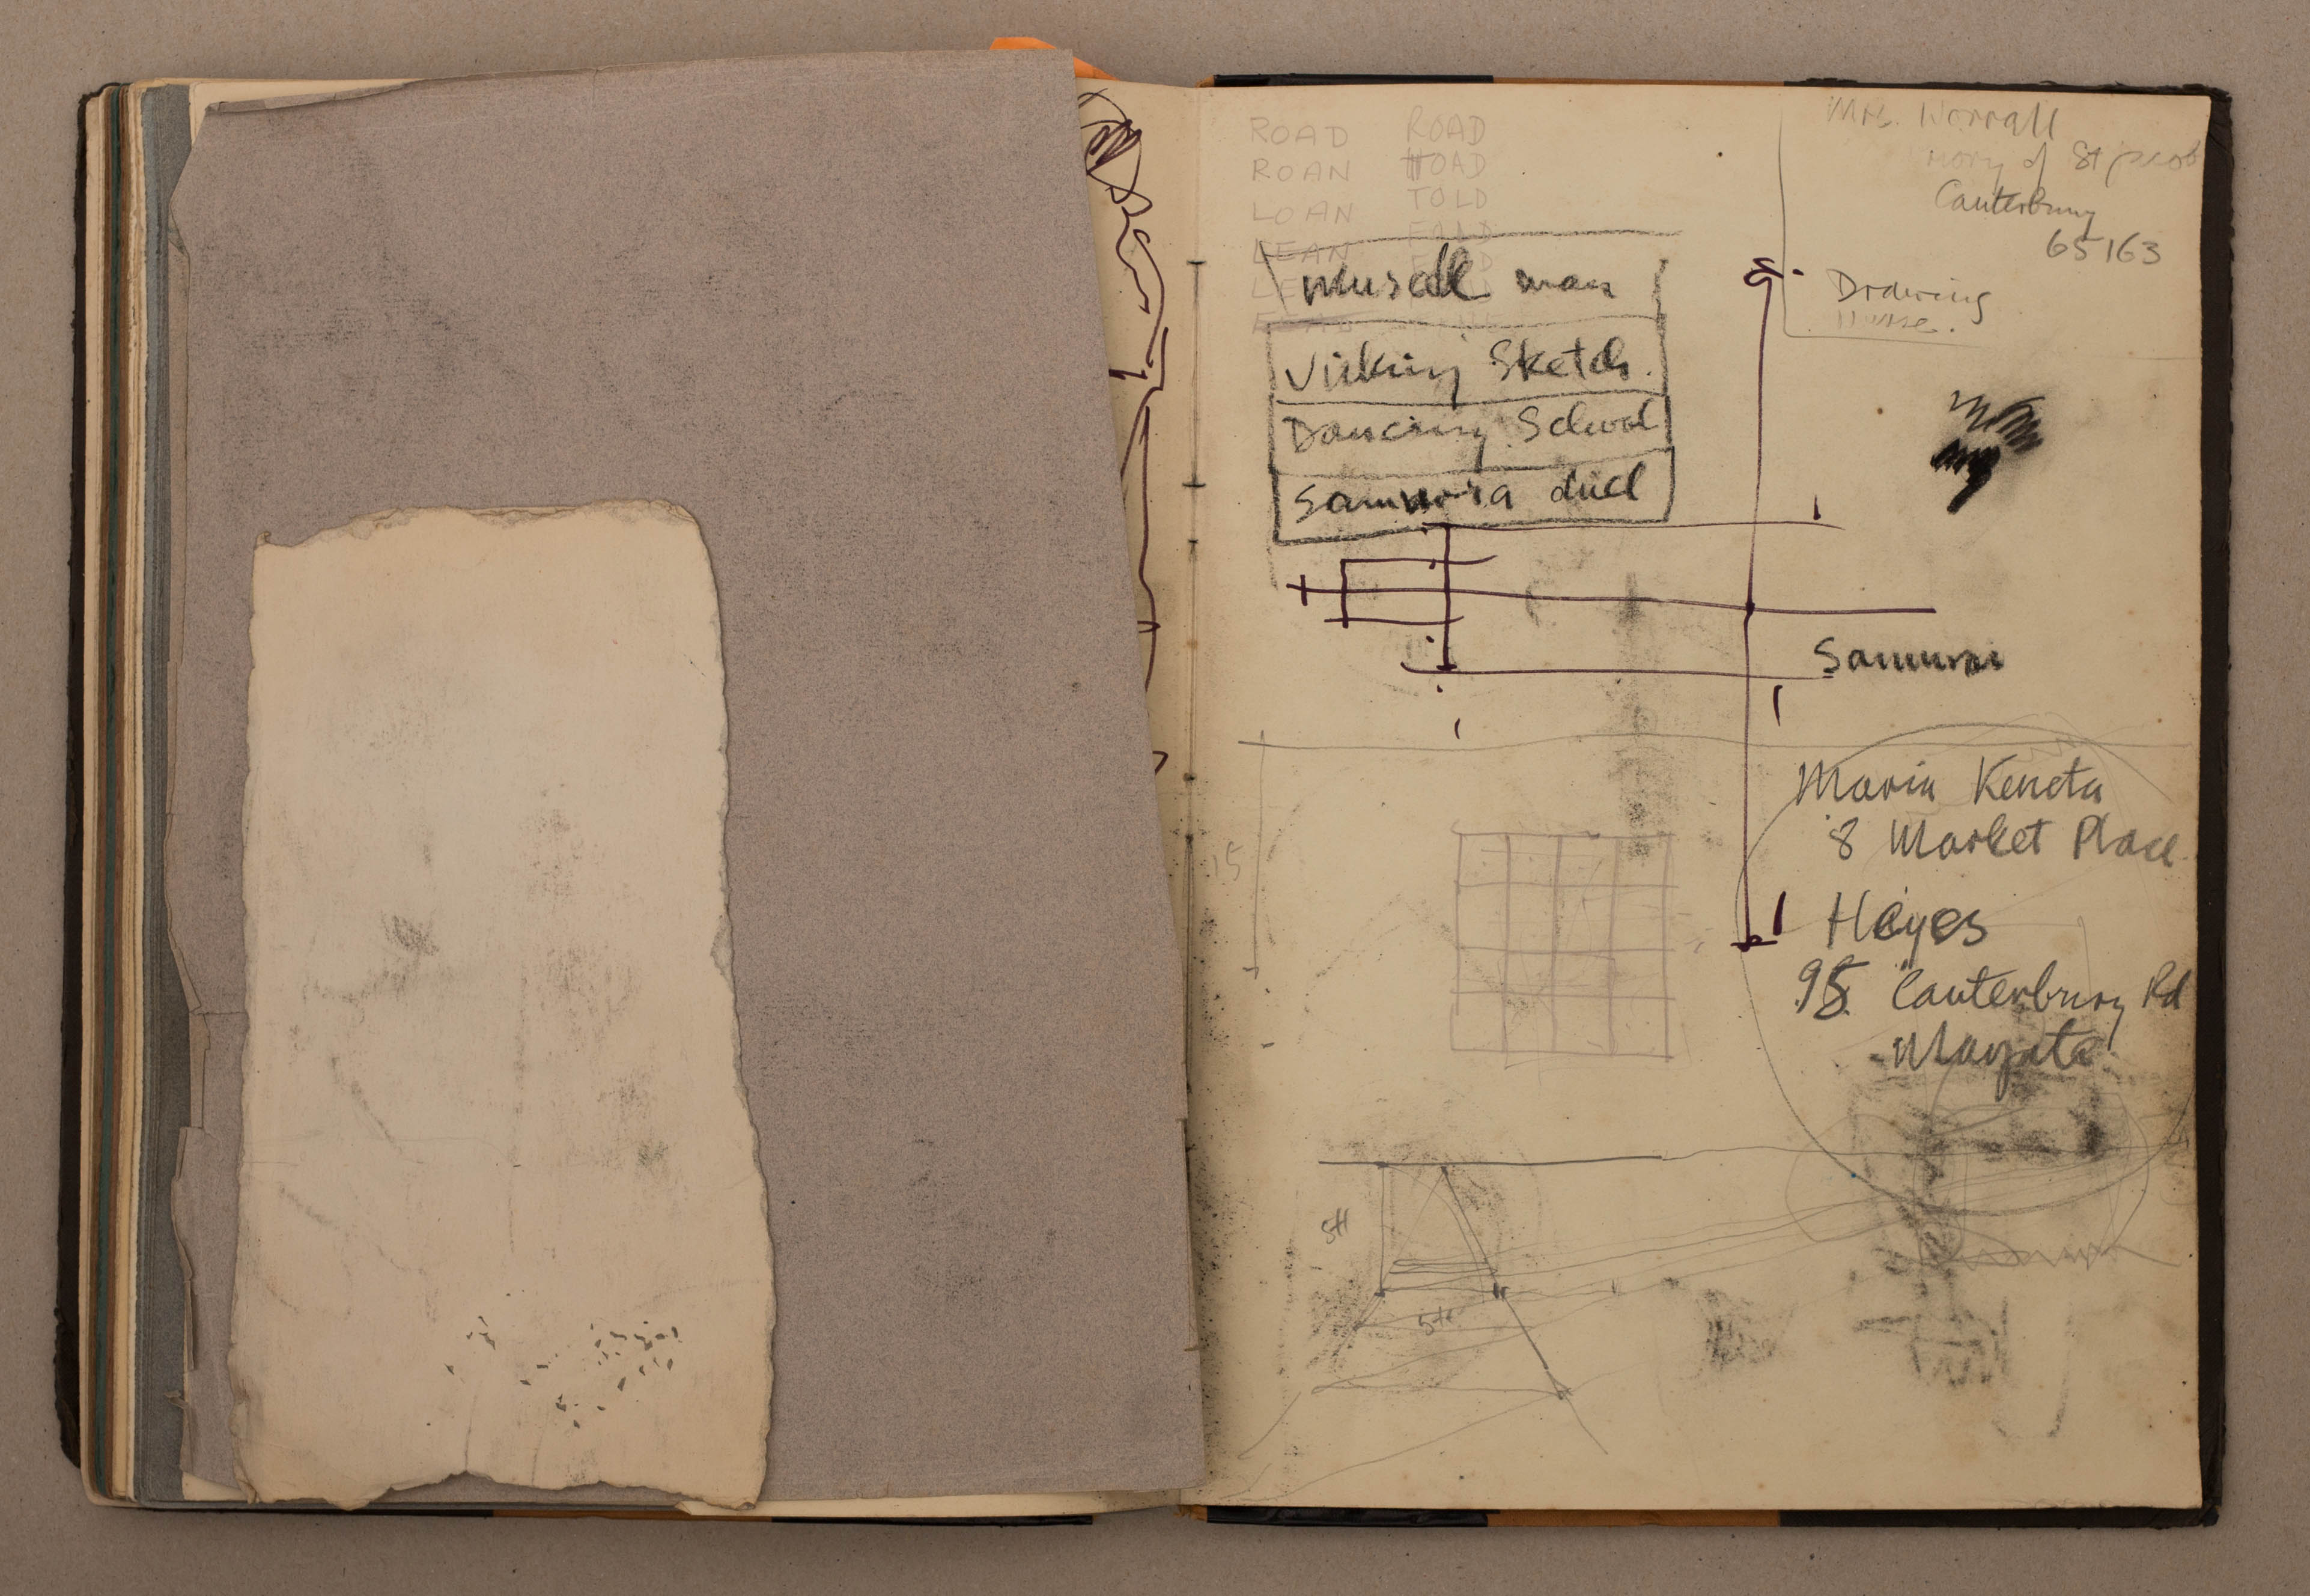 ROAD ROAD
ROAN TOAD
LOAN TOLD
LEAN FOLD
Muscle man
Vikiny Sketch.
Dancing School
Samuora duel
Mrs.
of St Jacob
Canterbury
65163
Drawing
Samurai
15
Maria Keneta
8 Market Place
Hayes
95 Canterbury Rd
Margate
5ft
5ft